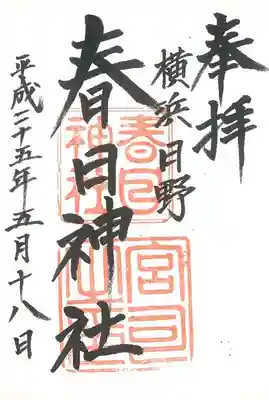 奉拝
横浜日野
春日神社
平成二十五年五月十八日
春日神社
宮司之印